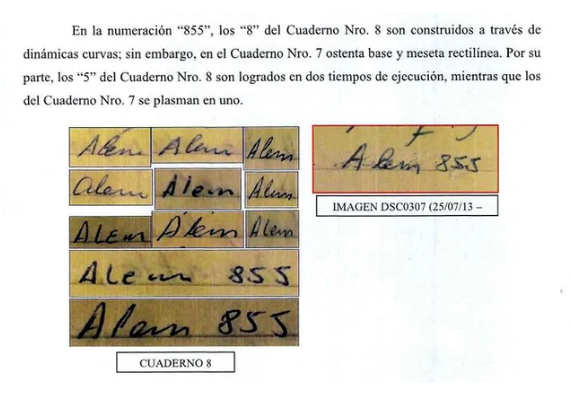 En la numeración “855”, los “8” del Cuaderno Nro. 8 son construidos a través de
dinámicas curvas; sin embargo, en el Cuaderno Nro. 7 ostenta base y meseta rectilínea. Por su
parte, los “5” del Cuaderno Nro. 8 son logrados en dos tiempos de ejecución, mientras que los
del Cuaderno Nro. 7 se plasman en uno.
Alem Alem Alem
Alem Alem Alem
ALEM Alem Alem
ALem 855
Alem 855
CUADERNO 8
Alem 855
IMAGEN DSC0307 (25/07/13 –